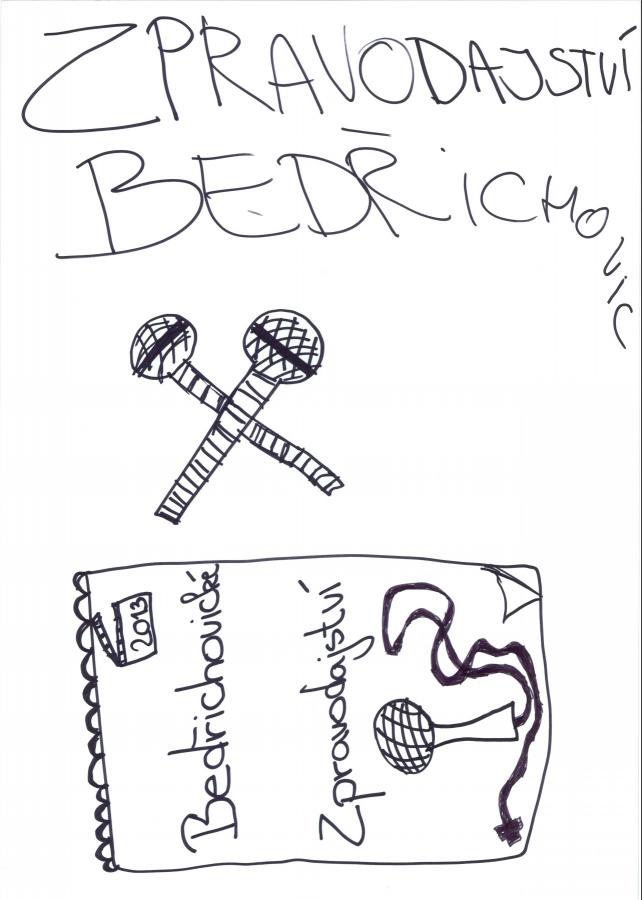 ZPRAVODAJSTVÍ
BEDŘICHOVIC
2013
Bedřichovické
Zpravodajství